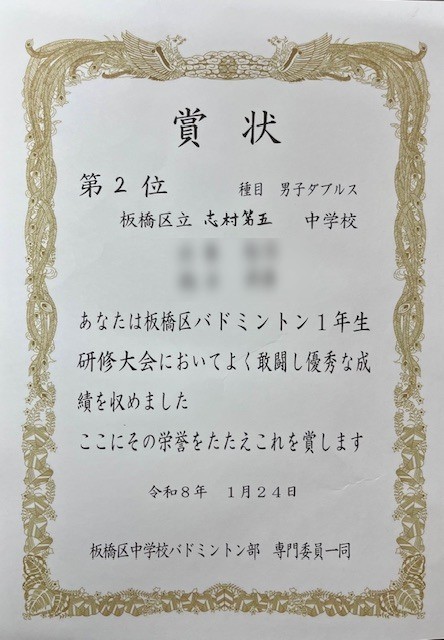 賞状
第2位 種目 男子ダブルス
板橋区立 志村第五 中学校
あなたは板橋区バドミントン1年生
研修大会においてよく敢闘し優秀な成
績を収めました
ここにその栄誉をたたえこれを賞します
令和8年 1月24日
板橋区中学校バドミントン部 専門委員一同